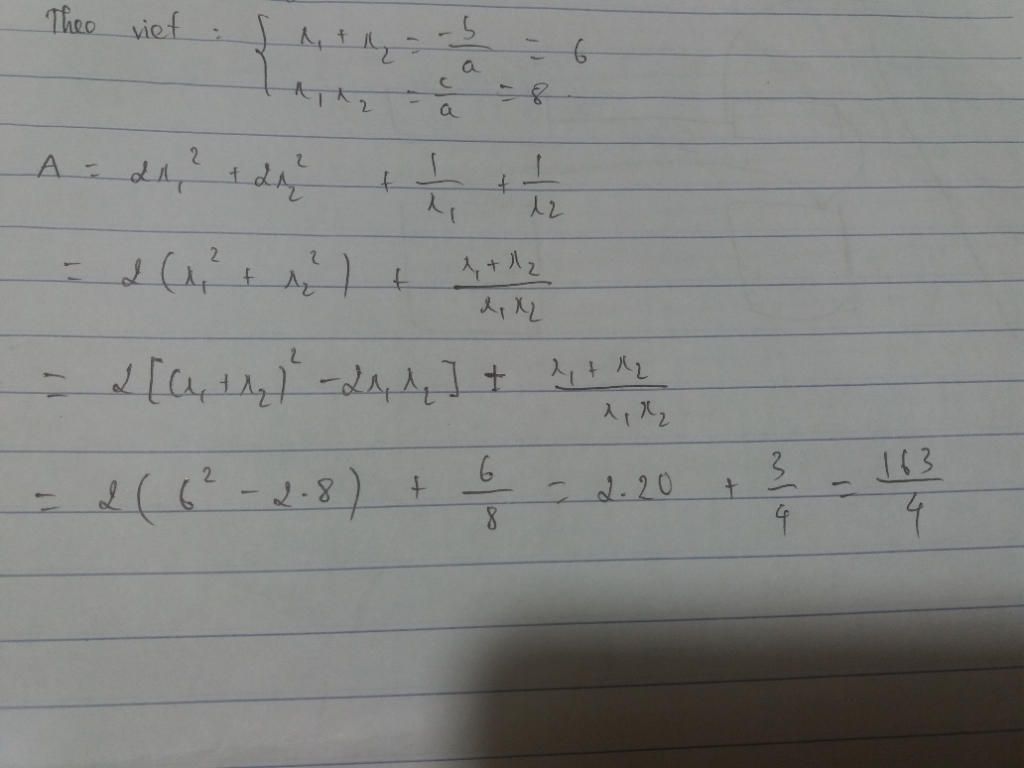 Theo viet : { x₁ + x₂ = -b/a = 6
x₁x₂ = c/a = 8
A = 2x₁² + 2x₂² + 1/x₁ + 1/x₂
= 2(x₁² + x₂²) + (x₁ + x₂)/(x₁x₂)
= 2[(x₁ + x₂)² - 2x₁x₂] + (x₁ + x₂)/(x₁x₂)
= 2(6² - 2.8) + 6/8 = 2.20 + 3/4 = 163/4